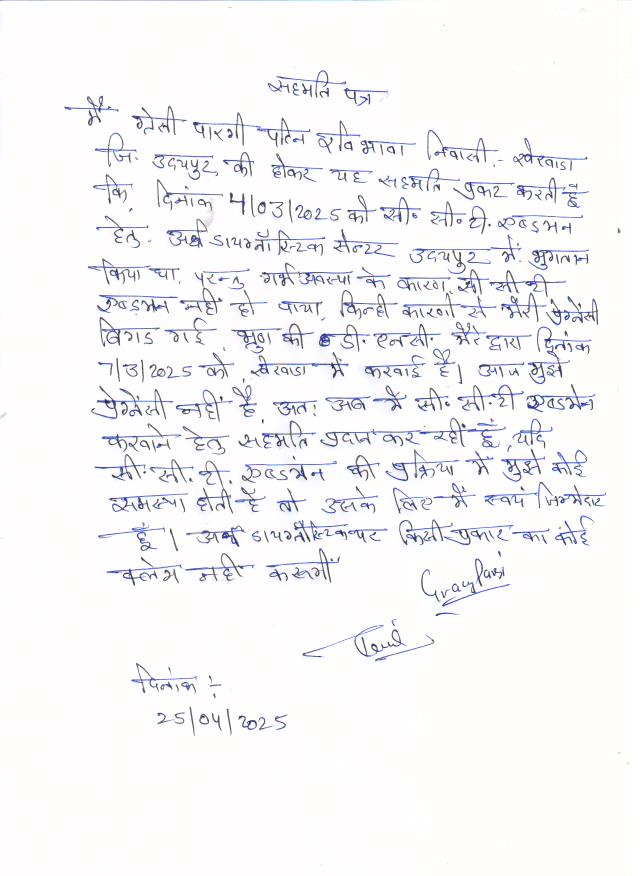 सहमति पत्र
मैं ग्रेसी पारगी पत्नि रवि भावा निवासी - खेरवाडा
जि. उदयपुर की होकर यह सहमति प्रकट करती हूँ
कि, दिनांक 4/03/2025 को सी. सी. टी. एब्डमन
हेतु. अर्थ डायग्नॉस्टिक सेन्टर उदयपुर में भुगतान
किया था, परन्तु गर्भ अवस्था के कारण, सी सी टी
एब्डमन नहीं हो पाया, किन्ही कारणों से मेरी प्रेग्नेंसी
बिगड गई, भ्रुण की डी. एनसी. मेरे द्वारा दिनांक
7/3/2025 को, खेरवाडा में करवाई है| आज मुझे
प्रेग्नेंसी नहीं है, अतः अब मैं सी. सी. टी एब्डमेन
करवाने हेतु सहमति प्रदान कर रहीं हूँ, यदि
सी. सी. टी. एब्डमेन की प्रक्रिया में मुझे कोई
समस्या होती है तो उसके लिए मैं स्वयं जिम्मेदार
हूँ | अर्थ डायग्नॉस्टिक पर किसी प्रकार का कोई
क्लेम नहीं करूगीं
Gracy Pargi
दिनांक :-
25/04/2025